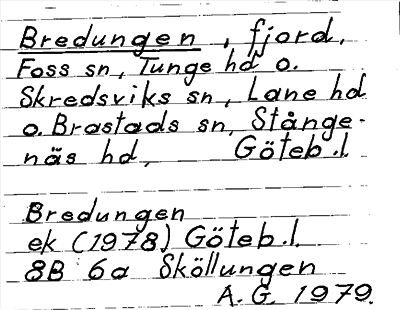 Bredungen, fjord,
Foss sn, Tunge hd o.
Skredsviks sn, Lane hd
o. Brastads sn, Stånge-
näs hd, Göteb.l.
Bredungen
ek (1978) Göteb.l.
8B 6a Sköllungen
A.G. 1979.